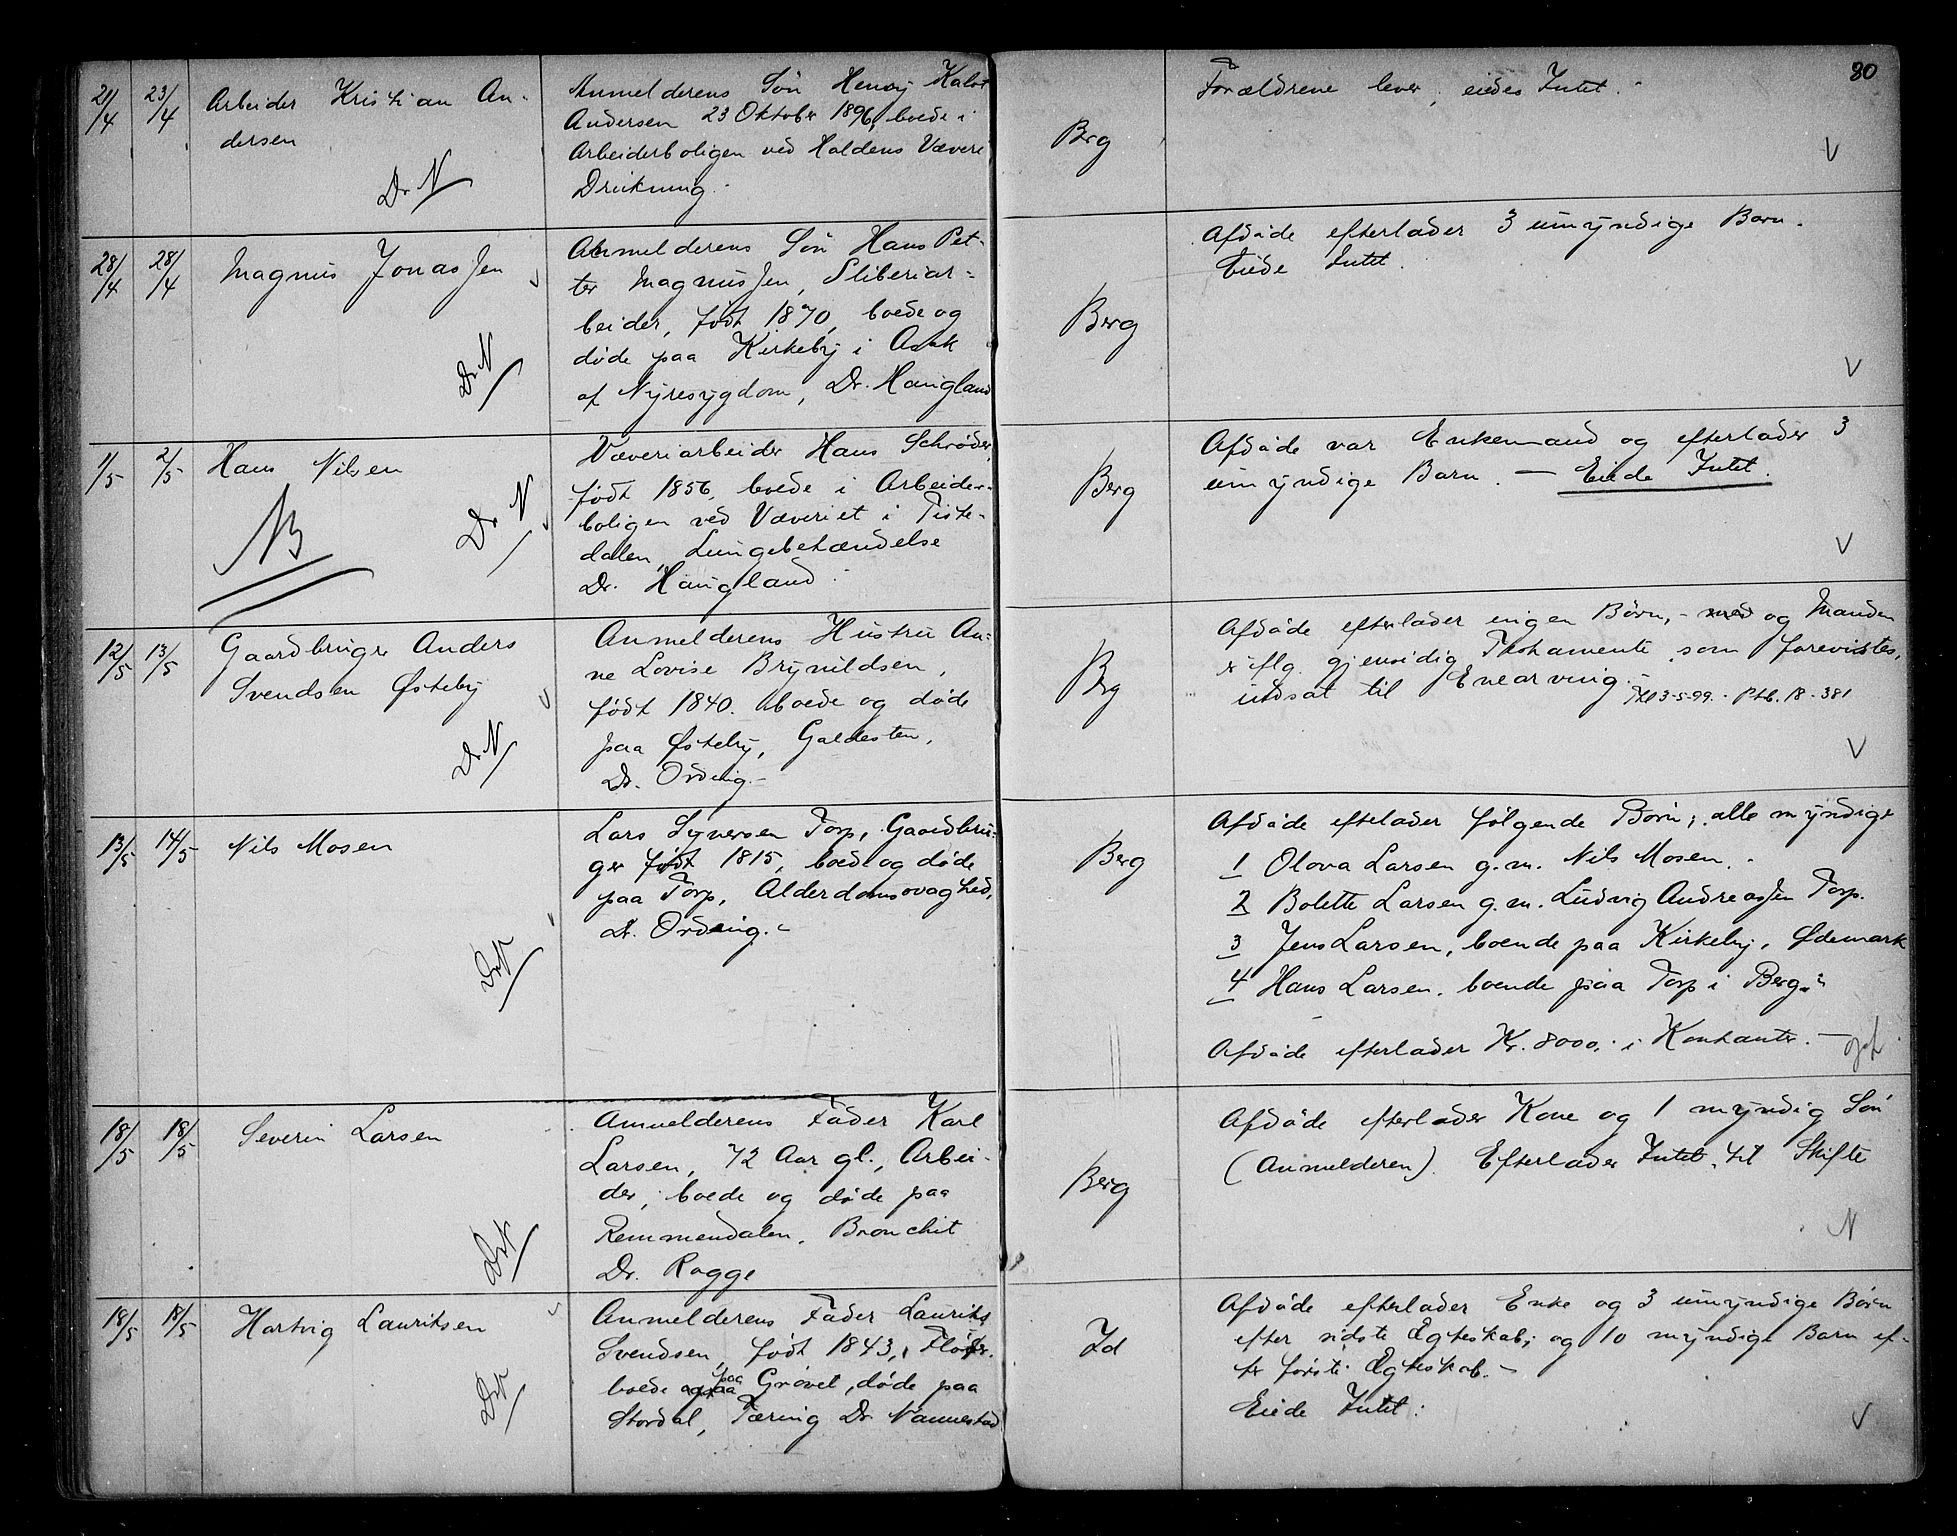 80
21/4 23/4 Arbeider Kristian An-
dersen
Dr N
Anmelderens Søn Henry
Andersen 23 Oktober 1896, boede i
Arbeiderboligen ved Haldens Væveri
Drukning.
Berg
Forældrene lever, eiedes Intet.
28/4 28/4 Magnus Jonassen
Dr N
Anmelderens Søn Hans Pet-
ter Magnussen, Sliberiar-
beider, født 1870, boede og
døde paa Kirkeby i Asak
af Nyresygdom, Dr. Haugland
Berg
Afdøde efterlader 3 umyndige Barn.
Eiede Intet.
1/5 2/5 Hans Nilsen
NB
Dr N
Væveriarbeider Hans Schrøder,
født 1856, boede i Arbeider-
boligen ved Væveriet i Tiste-
dalen, Lungebetændelse
Dr. Haugland.
Berg
Afdøde var Enkemand og efterlader 3
umyndige Barn. — Eiede Intet.
12/5 13/5 Gaardbruger Anders
Svendsen Østeby
Dr N
Anmelderens Hustru An-
ne Lovise Brynildsen,
født 1840. boede og døde
paa Østeby, Galdesten,
Dr. Ording.-
Berg
Afdøde efterlader ingen Børn, - med og Manden
er iflg. gjensidig Testamente, som forevistes,
indsat til Enearving.-
Thl 3-5-99. Ptb. 18-381
13/5 14/5 Nils Mosen
Dr N
Lars Syversen Torp, Gaardbru-
ger født 1815, boede og døde
paa Torp, Alderdomssvaghed,
Dr. Ording.-
Berg
Afdøde efterlader følgende Børn; alle myndige
1 Olova Larsen g.m. Nils Mosen.-
2 Bolette Larsen g.m. Ludvig Andreassen Torp.
3 Jens Larsen, boende paa Kirkeby, Ødemark
4 Hans Larsen, boende paa Torp i Berg.-
Afdøde efterlader Kr. 8000,- i Kontanter.-
18/5 18/5 Severin Larsen
Dr N
Anmelderens Fader Karl
Larsen, 72 Aar gl., Arbei-
der, boede og døde paa
Remmendalen, Bronchit
Dr. Rogge
Berg
Afdøde efterlader Kone og 1 myndig Søn
(Anmelderen). Efterlader Intet til Skifte
N
18/5 18/5 Hartvig Lauritsen
Dr N
Anmelderens Fader Laurits
Svendsen, født 1843, Fløter.
boede paa Grøvet, døde paa
Stordal, Tæring Dr. Nannestad
Id
Afdøde efterlader Enke og 3 umyndige Børn
efter sidste Ægteskab; og 10 myndige Barn ef-
ter første Ægteskab.-
Eiede Intet.